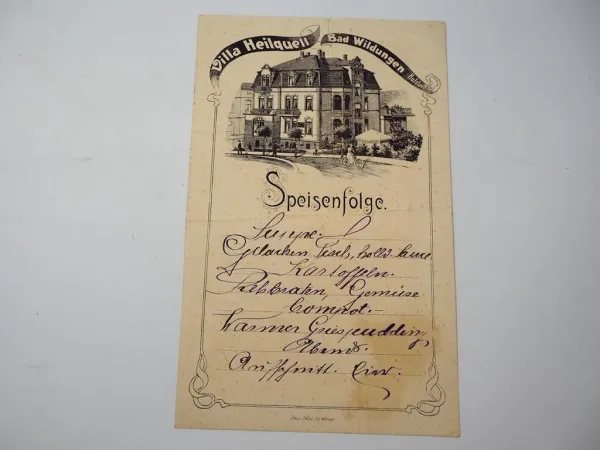 Villa Heilquell Bad Wildungen
Speisenfolge.
Suppe.
Gebacken Fisch, holld. Sauce
Kartoffeln.
Rehbraten, Gemüse
Compot.-
Warmer Griespudding,
Abends.
Aufschnitt. Eier.